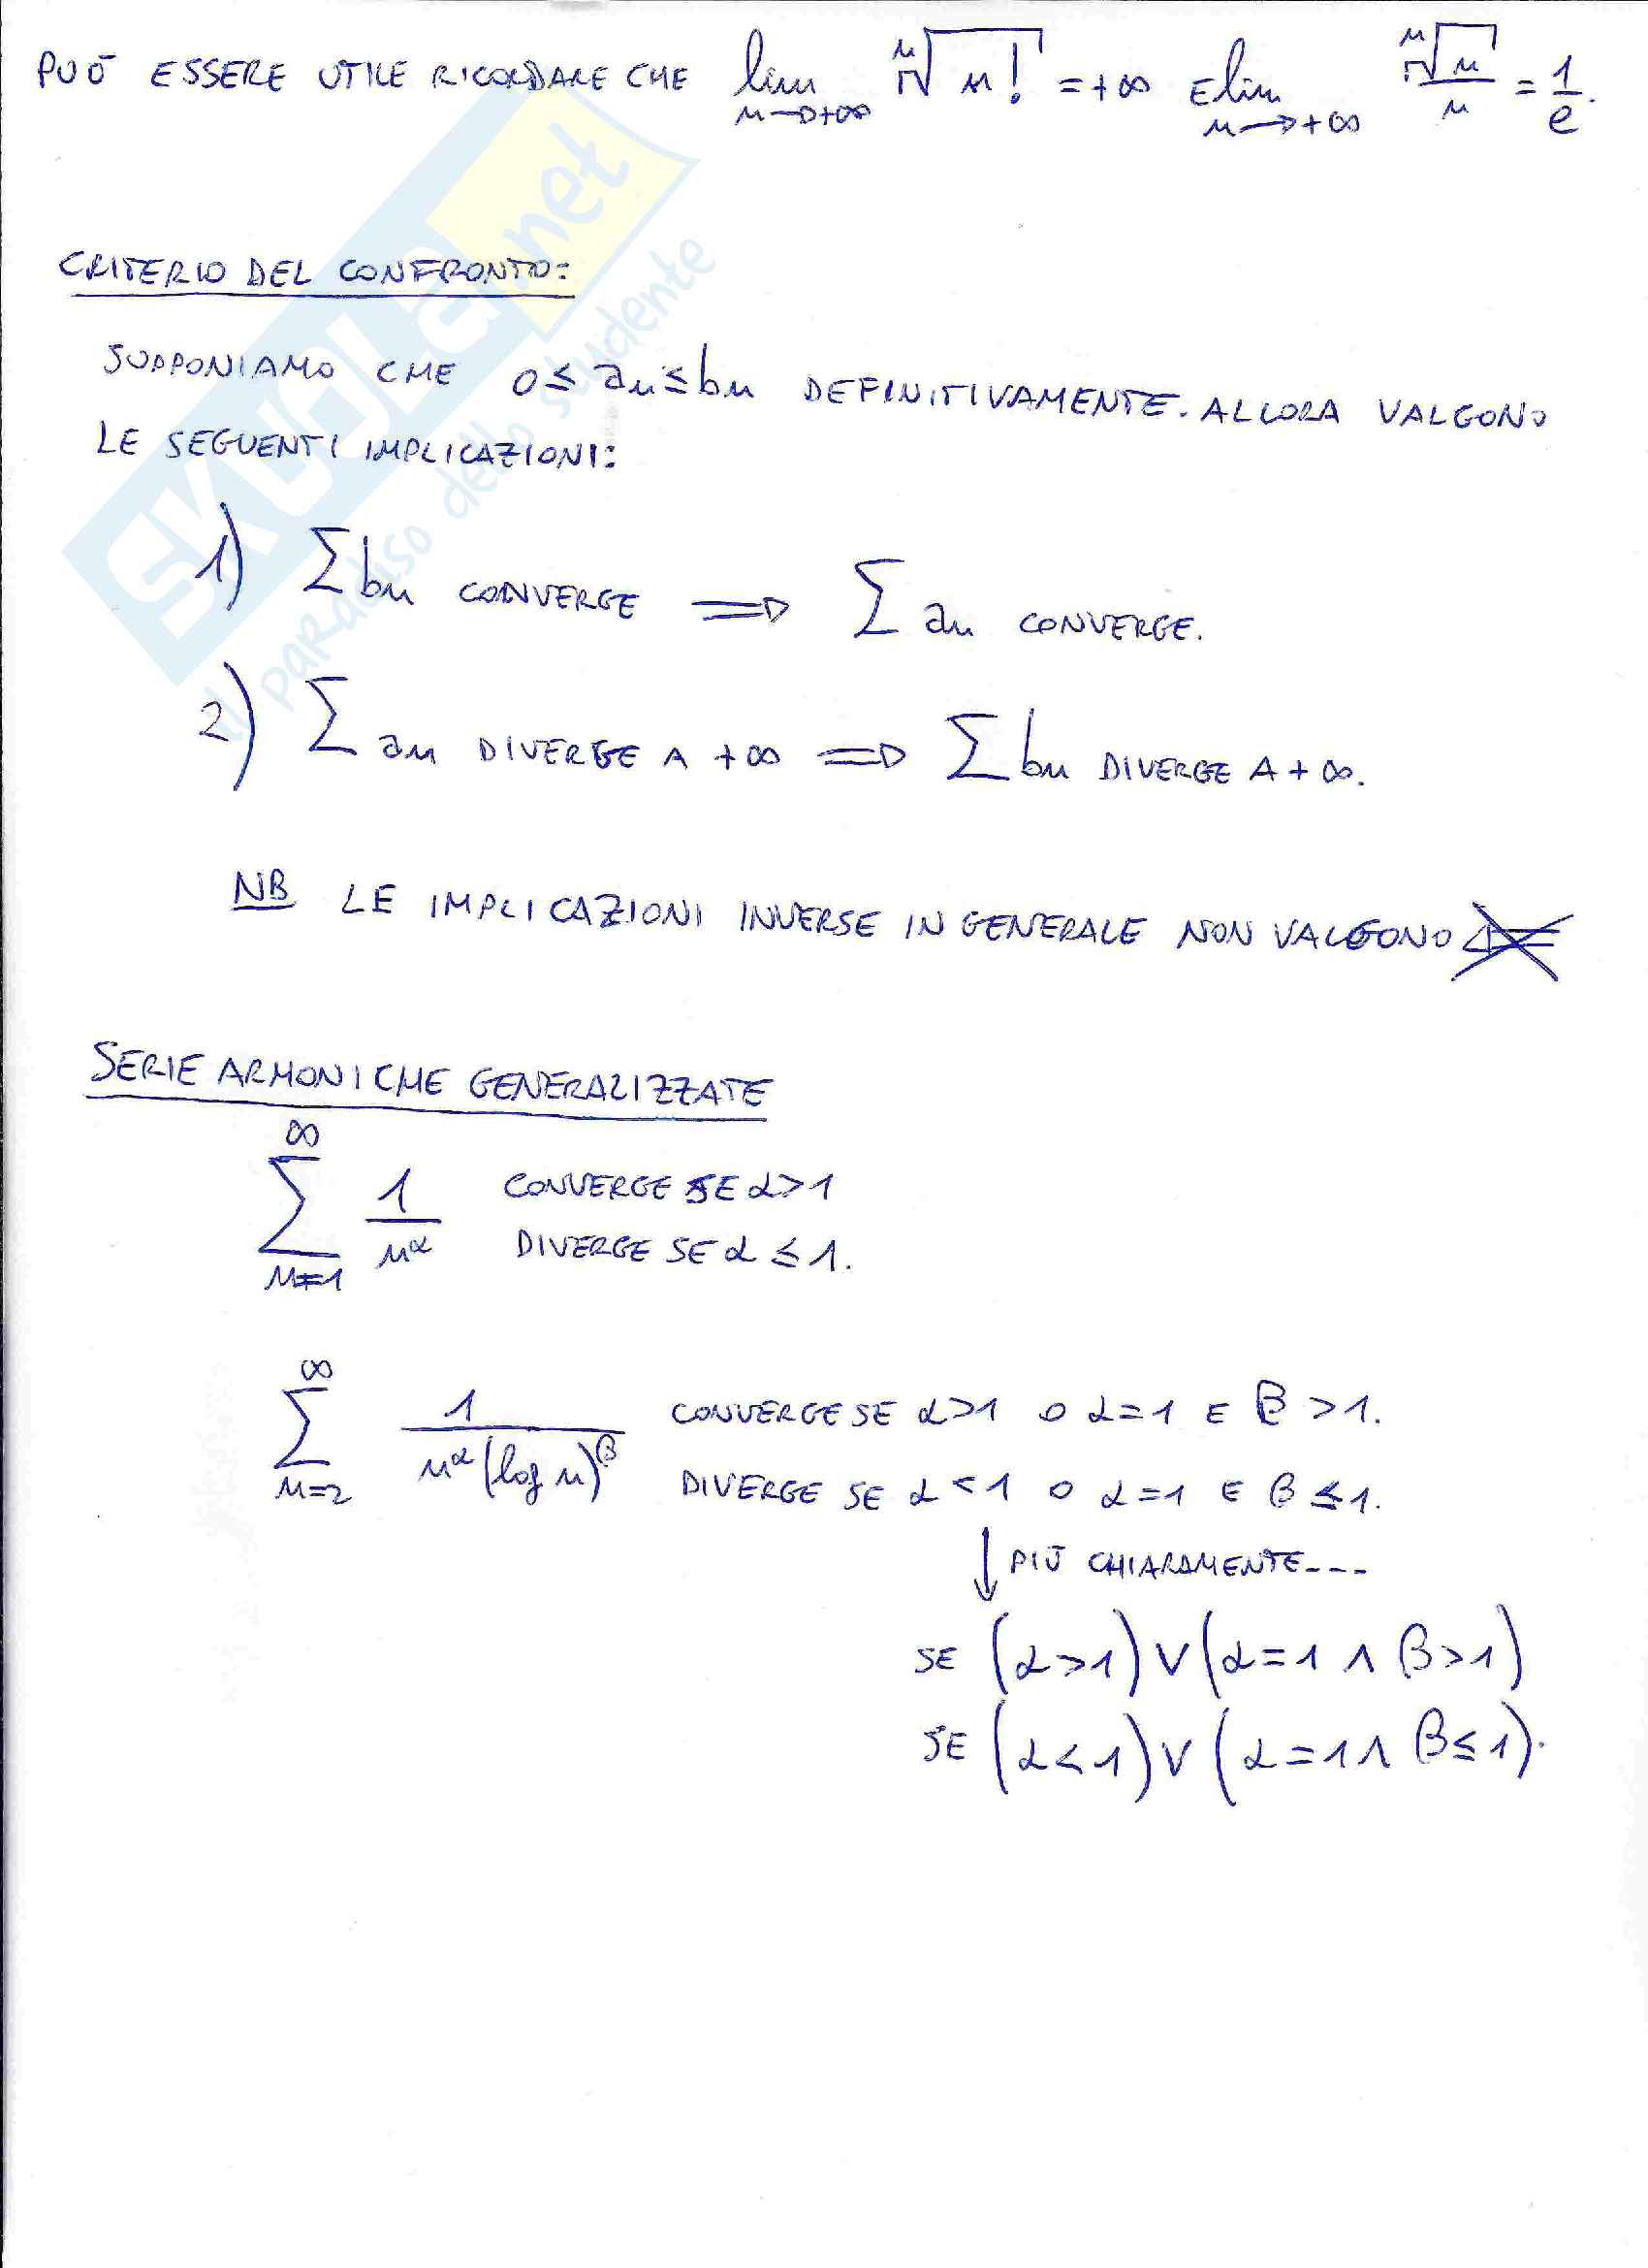 PUÒ ESSERE UTILE RICORDARE CHE lim n→+∞ ⁿ√n! = +∞ E lim n→+∞ ⁿ√n / n = 1/e.
CRITERIO DEL CONFRONTO:
SUPPONIAMO CHE 0 ≤ an ≤ bn DEFINITIVAMENTE. ALLORA VALGONO
LE SEGUENTI IMPLICAZIONI:
1) ∑ bn CONVERGE ⟹ ∑ an CONVERGE.
2) ∑ an DIVERGE A +∞ ⟹ ∑ bn DIVERGE A +∞.
NB LE IMPLICAZIONI INVERSE IN GENERALE NON VALGONO ⇍
SERIE ARMONICHE GENERALIZZATE
∞
∑ 1/n^α CONVERGE SE α>1
n=1 DIVERGE SE α ≤ 1.
∞
∑ 1/(n^α (log n)^β) CONVERGE SE α>1 O α=1 E β >1.
n=2 DIVERGE SE α<1 O α=1 E β ≤1.
↓ PIÙ CHIARAMENTE---
SE (α>1) ∨ (α=1 ∧ β>1)
SE (α<1) ∨ (α=1 ∧ β≤1).
SKUOLA.net
il paradiso dello studente